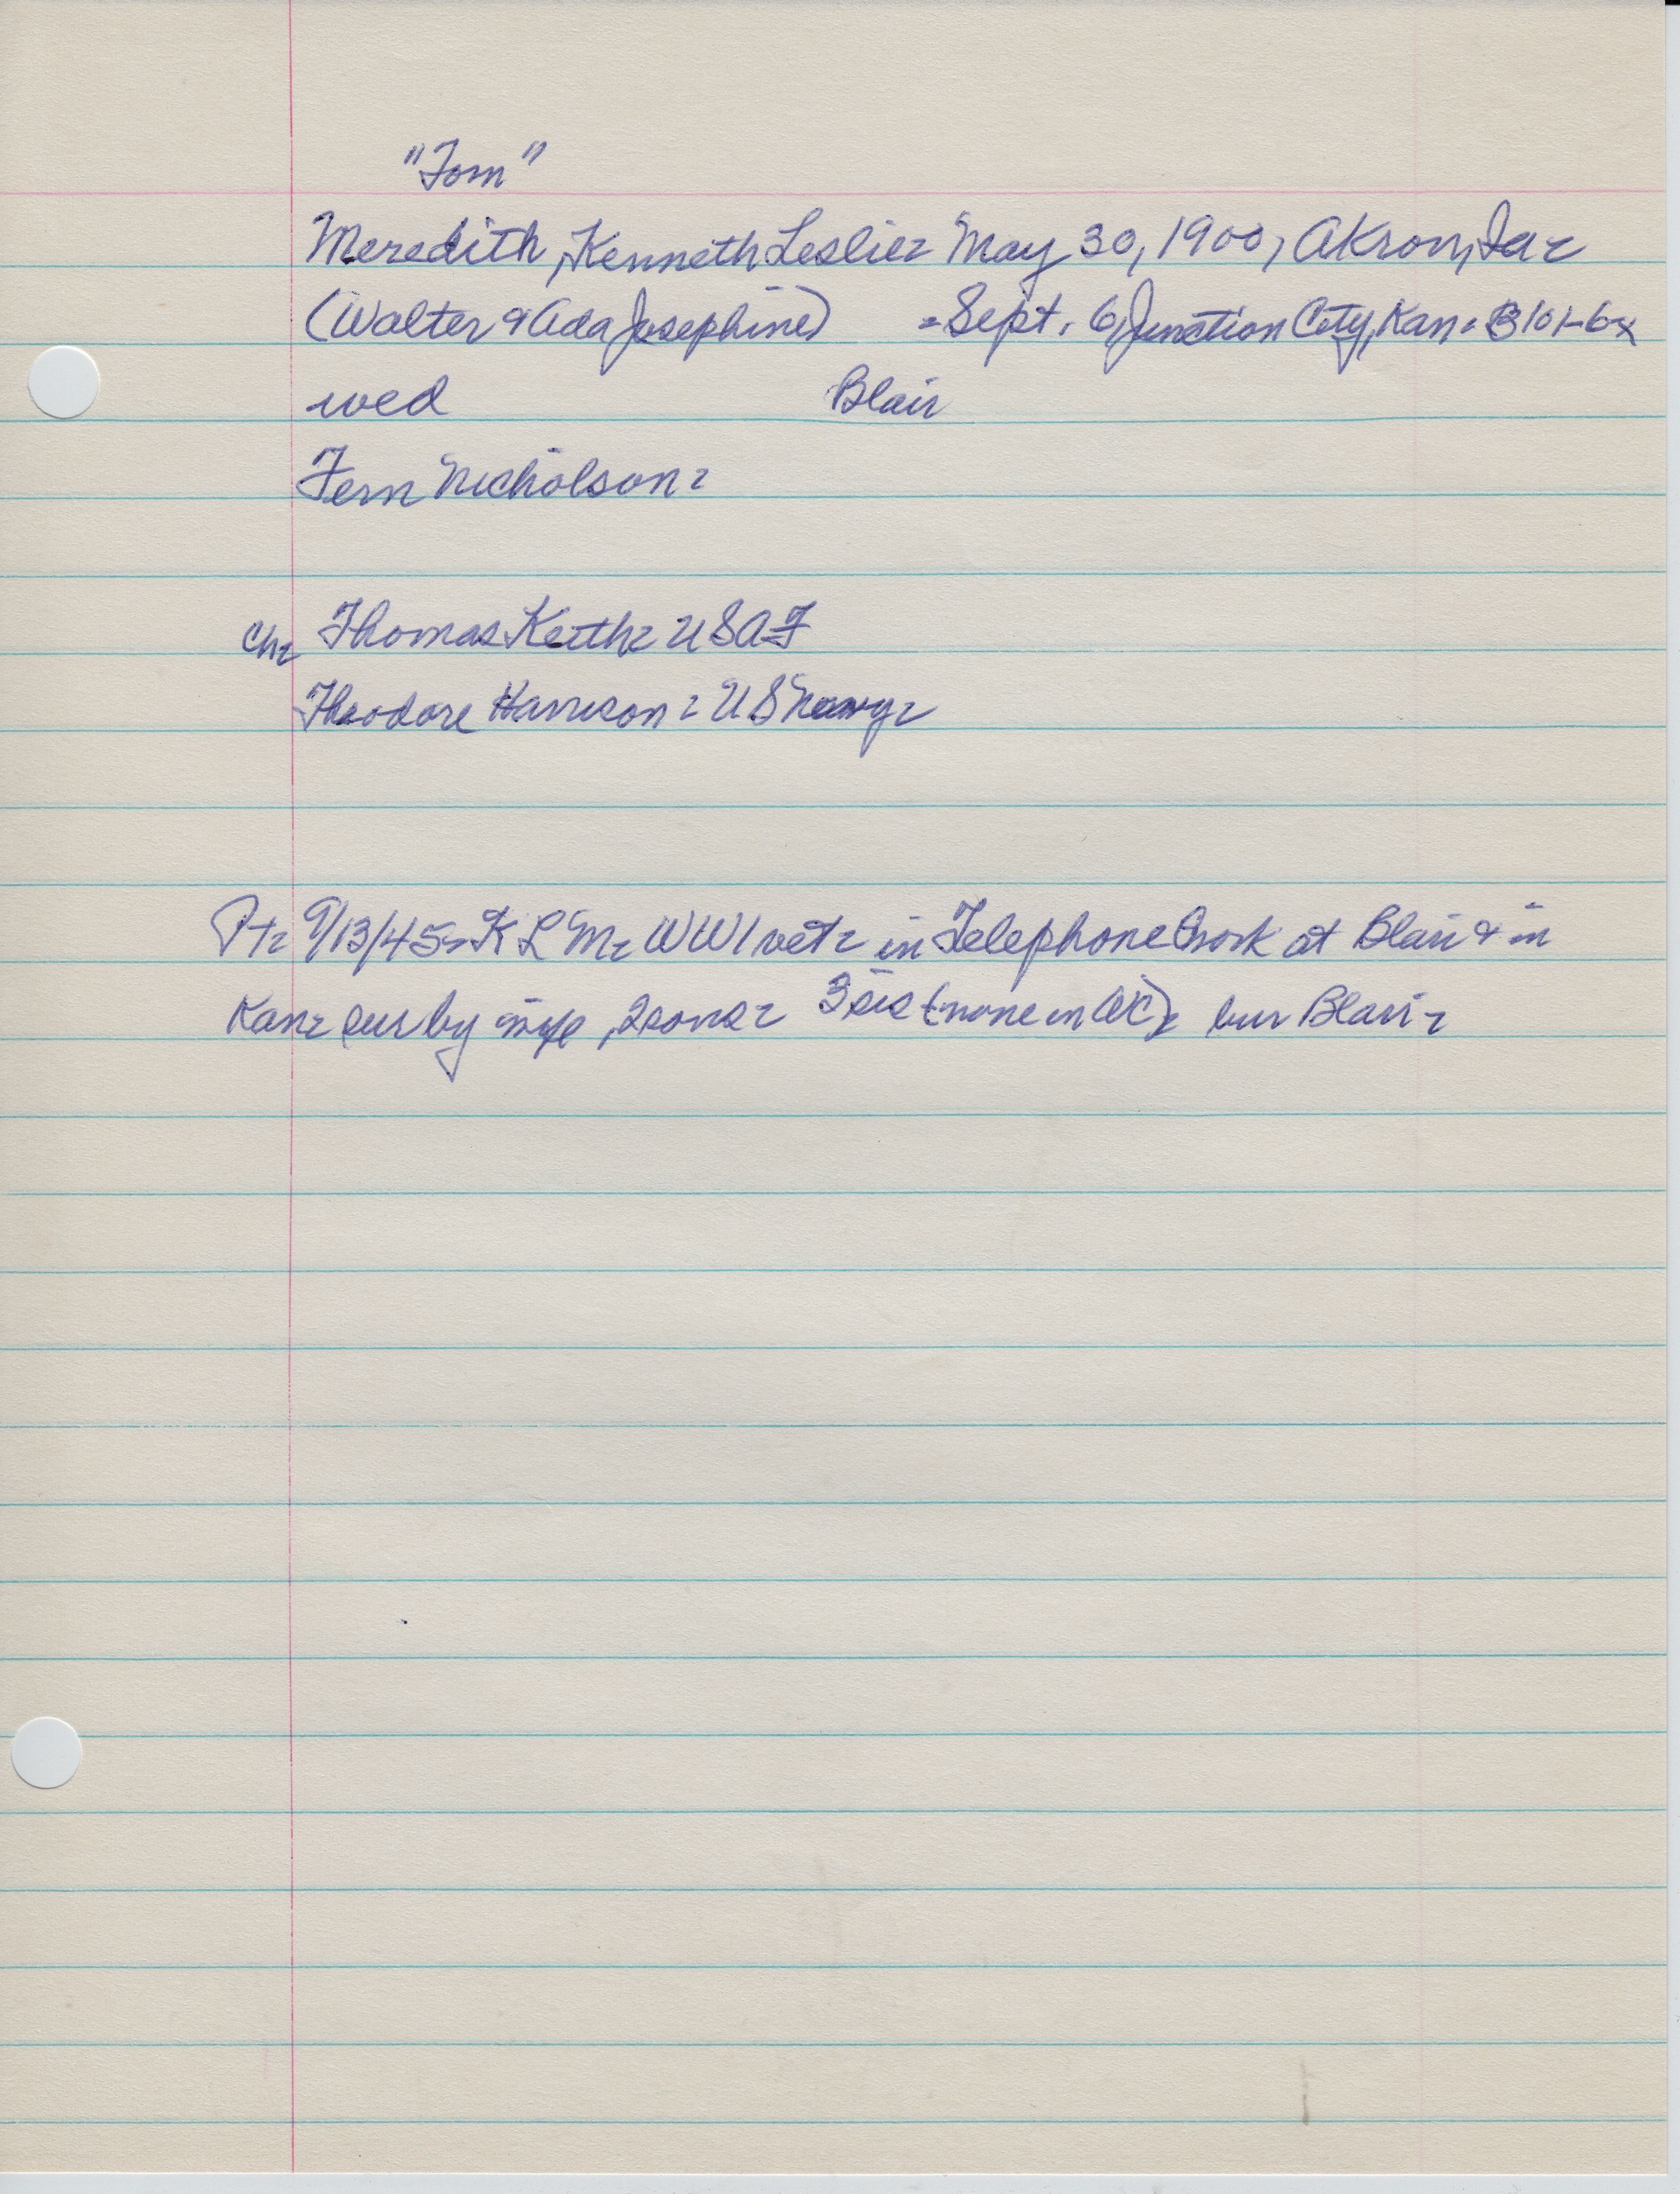 "Tom"
Meredith, Kenneth Leslie - May 30, 1900, Akron, Ia -
(Walter & Ada Josephine) - Sept. 6, Junction City, Kan - B101-6x
wed Blair
Fern Nicholson -
Ch - Thomas Keith - USAF
Theodore Harrison - US Navy -
Pt - 9/13/45 - K L M - WW1 vet - in Telephone work at Blair & in
Kan - sur by wife, 2 sons - 3 sis (none in WC) - bur Blair -